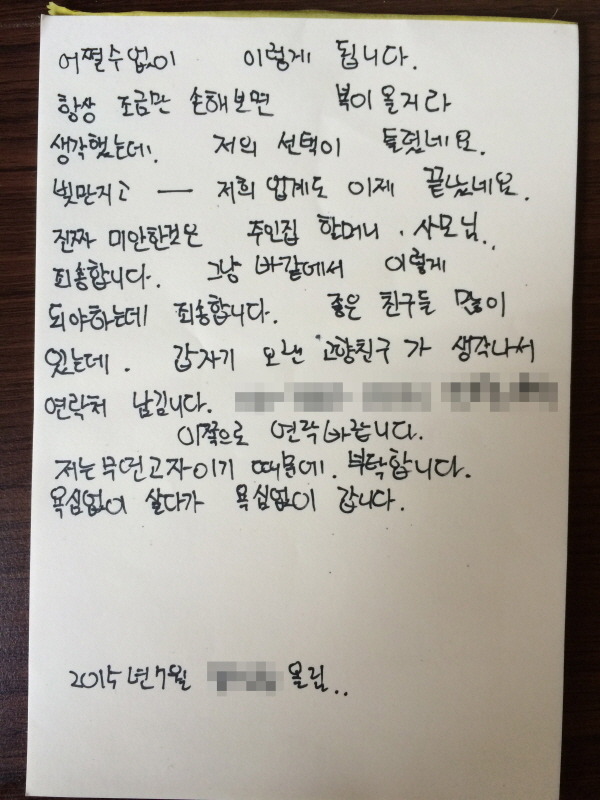 어쩔수없이 이렇게 됩니다.
항상 조금만 손해보면 복이올거라
생각했는데. 저의 선택이 틀렸네요.
빚만지고 — 저희 업계도 이제 끝났네요.
진짜 미안한것은 주인집 할머니. 사모님.
죄송합니다. 그냥 바깥에서 이렇게
되야하는데 죄송합니다. 좋은 친구들 많이
있는데. 갑자기 오랜 고향친구가 생각나서
연락처 남깁니다.
이쪽으로 연락바랍니다.
저는 무연고자이기 때문에. 부탁합니다.
욕심없이 살다가 욕심없이 갑니다.
2015년 7월 올림..